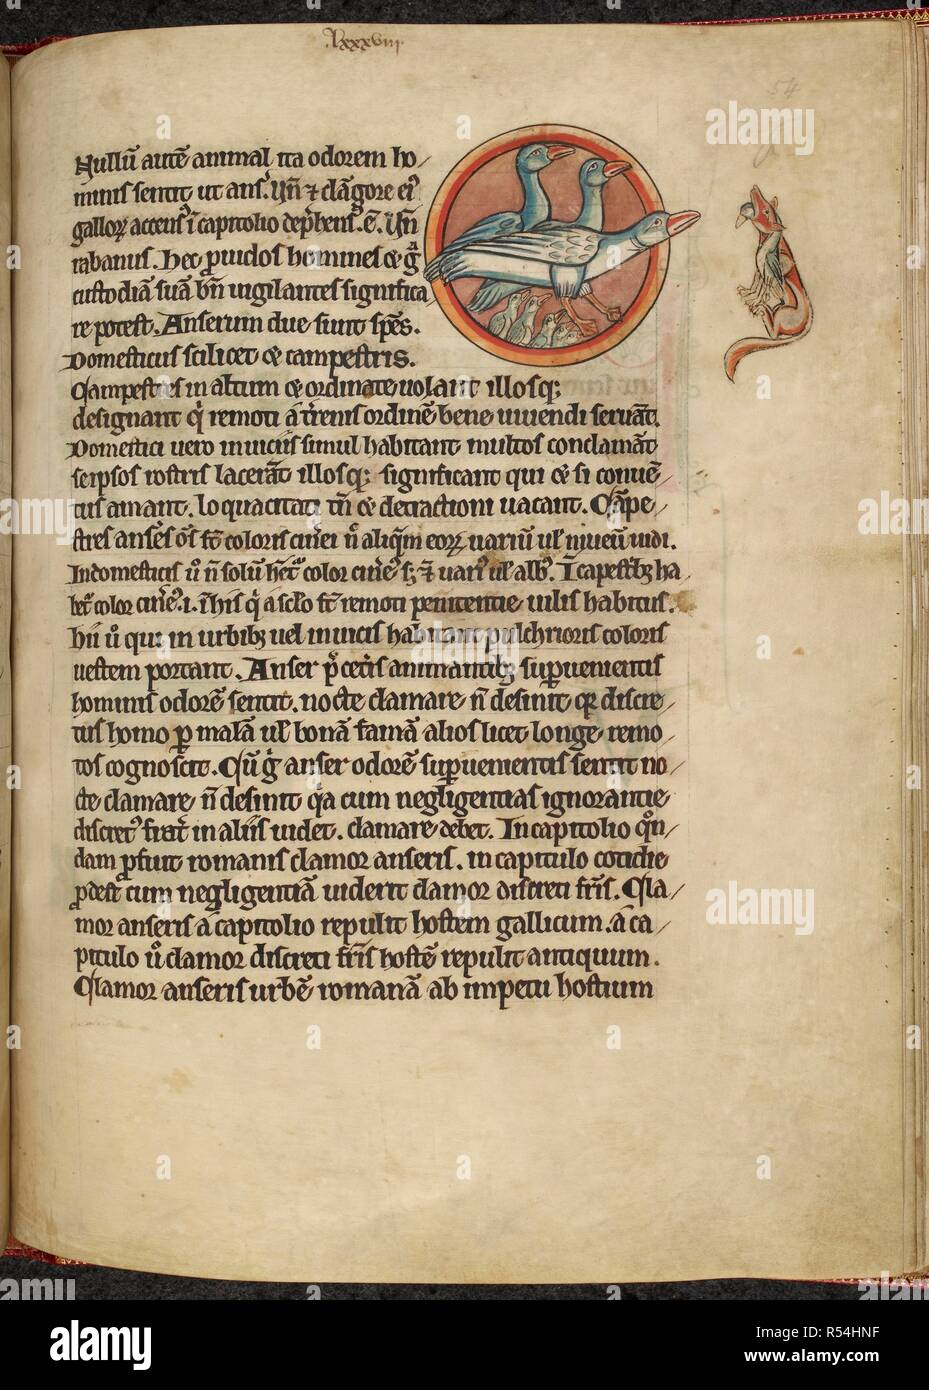 .lxxxviii.
54
Nullū autē animal ita odorem ho/
minis sentit ut ans̾. Vn̄ ⁊ clāgore ei᷒
galloꝝ accens᷒ ī capitolio dep̄hens᷒. ē. Vn̄
rabanus. Hec ꝓuidos homines ⁊ erga
custodiā suā bn̄ uigilantes significa
re potest. Anserum due sunt sp̄es.
Domesticus scilicet ⁊ campestris.
Campestres in altum ⁊ ordinate uolant illosq;
designant qͥ remoti a t̄renis ordinē bene uiuendi seruāt.
Domestici uero in uicis simul habitant multos conclamāt
seipsos rostris lacerāt illosq; significant qui ⁊ si conuē
tus amant. loquacitati tn̄ ⁊ detractioni uacant. Cāpe/
stres anseres om̄s sūt coloris cinerei n̄ aliqͣm eoꝝ uariū uel niueū uidi.
In domesticis u͛ n̄ solū het᷒ color ciner᷒ s; ⁊ uari᷒ ul̄ alb᷒. In capestribꝫ ha
bet᷒ color ciner᷒.i. ī his qͥ a sclo sūt remoti penitentie uilis habitus.
hii u͛ qui in urbibꝫ uel in uicis habitant pulchrioris coloris
uestem portant. Anser p̄ ceteris animantibꝫ superuenientis
hominis odorē sentit. nocte clamare n̄ desinit qꝛ discre
tus homo ꝑ malā ul̄ bonā famā alios licet longe remo
tos cognoscit. Cū gͦ anser odorē superuenientis sentit no/
cte clamare n̄ desinit qͣ cum negligentias ignorantie
discret᷒ frater in aliis uidet. clamare debet. In capitolio qͦn/
dam ꝓfuit romanis clamor anseris. in capitulo cotidie
ꝓdest cum negligentiā uiderit clamor discreti fr̄is. Cla/
mor anseris a capitolio repulit hostem gallicum. a ca/
pitulo u͛ clamor discreti fr̄is hostē repulit antiquum.
Clamor anseris urbē romanā ab impetu hostium
alamy
R54HNF